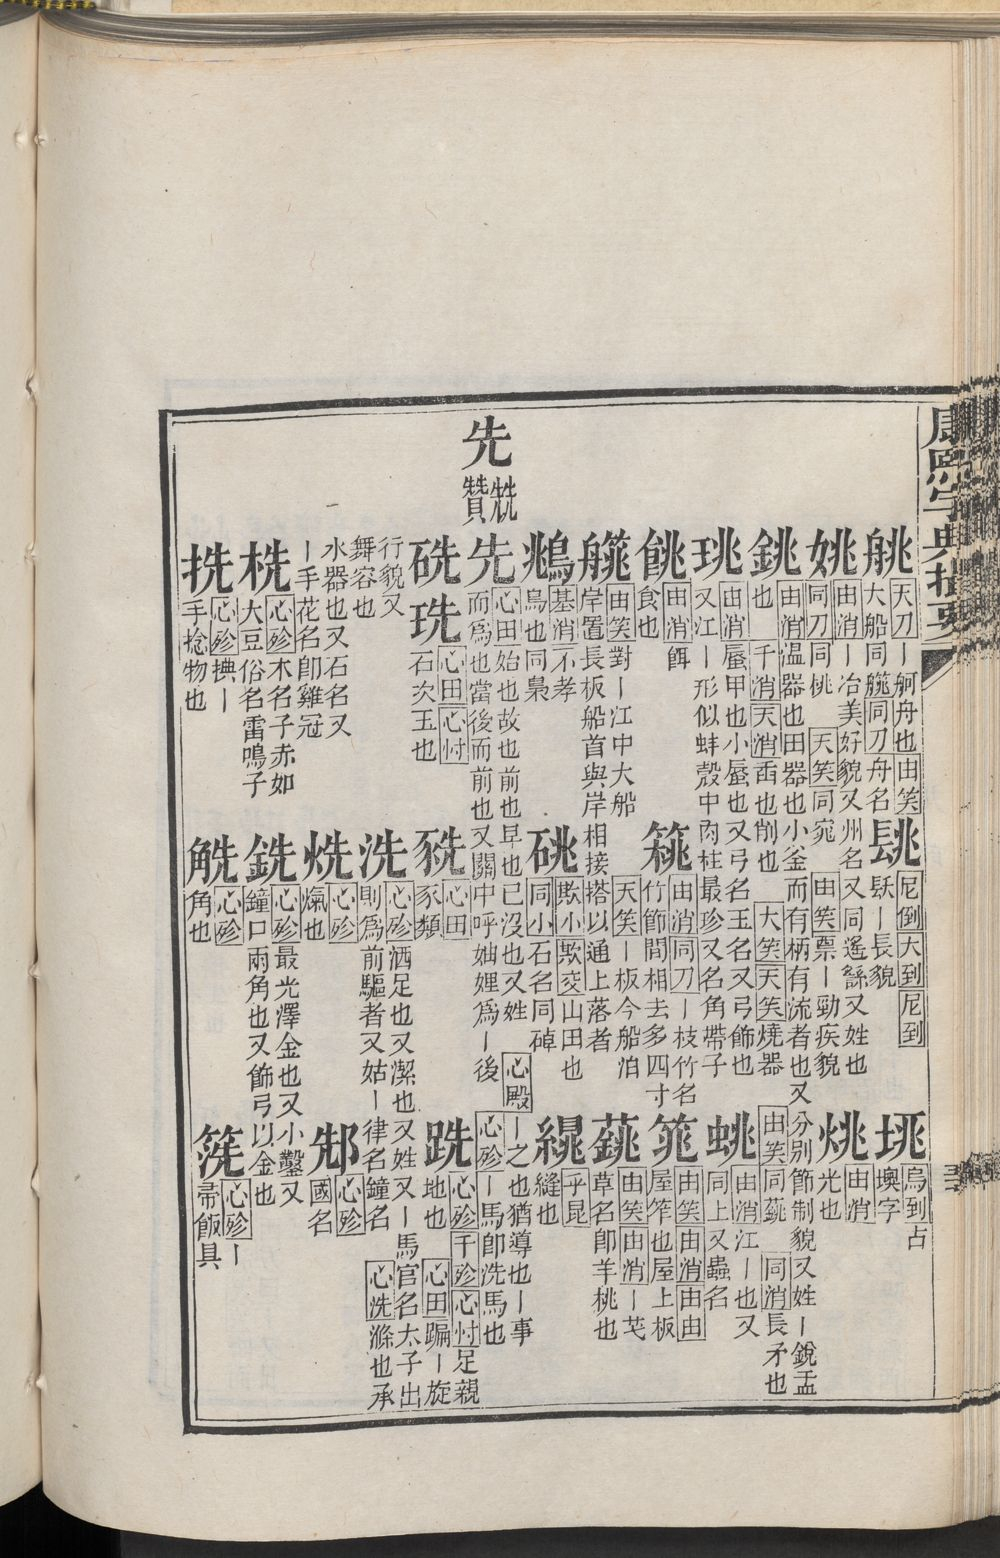 康熙字典撮要
𦨣 天刀｜舸舟也由笑
大船同艞同刀舟名
镺 尼倒大到尼到
镺｜長貌
垗 烏到占
墺字
姚 由消｜冶美好貌又州名又同遙繇又姓也
同刀同恌 天笑同宨 由笑票｜勁疾貌
烑 由消
光也
銚 由消温器也田器也小釜而有柄有流者也又分別節制貌又姓｜銳盂
也 千消天消臿也削也 大笑天笑燒器 由笑同䔜 同消長矛也
珧 由消蜃甲也小蜃也又弓名玉名又弓飾也
又江｜形似蚌殼中肉柱最珍又名角帶子
蛯 由消江｜也又
同上又蟲名
䬰 由消餌
食也
䉬 由消同刀｜枝竹名
竹節間相去多四寸
窕 由笑由消由由
屋笮也屋上板
艞 由笑對｜江中大船 天笑｜板今船泊
岸置長板船首與岸相接搭以通上落者
䔜 由笑由消｜芅
草名卽羊桃也
鴵 基消不孝
鳥也同梟
硗 欺小欺交山田也
同小石名同䂽
縨 乎昆
縫也
先 兟贊
先 心田始也故也前也早也已沒也又姓 心殿｜之也猶導也｜事
而爲也當後而前也又關中呼妯娌爲｜後 心殄｜馬卽洗馬也
硄 珗 心田心忖
石次玉也
㹵 心田
豕類
跣 心殄千殄心忖足親
地也 心田蹁｜旋
行貌又
舞容也
洗 心殄洒足也又潔也又姓又｜馬官名太子出
則爲前驅者又姑｜律名鐘名 心洗滌也承
水器也又石名又
｜手花名卽雞冠
烍 心殄
㷼也
𨛚 心殄
國名
桄 心殄木名子赤如
大豆俗名雷鳴子
銑 心殄最光澤金也又小鑿又
鐘口兩角也又飾弓以金也
筅 心殄｜
帚飯具
㧥 心殄㨆｜
手捻物也
䚚 心殄
角也